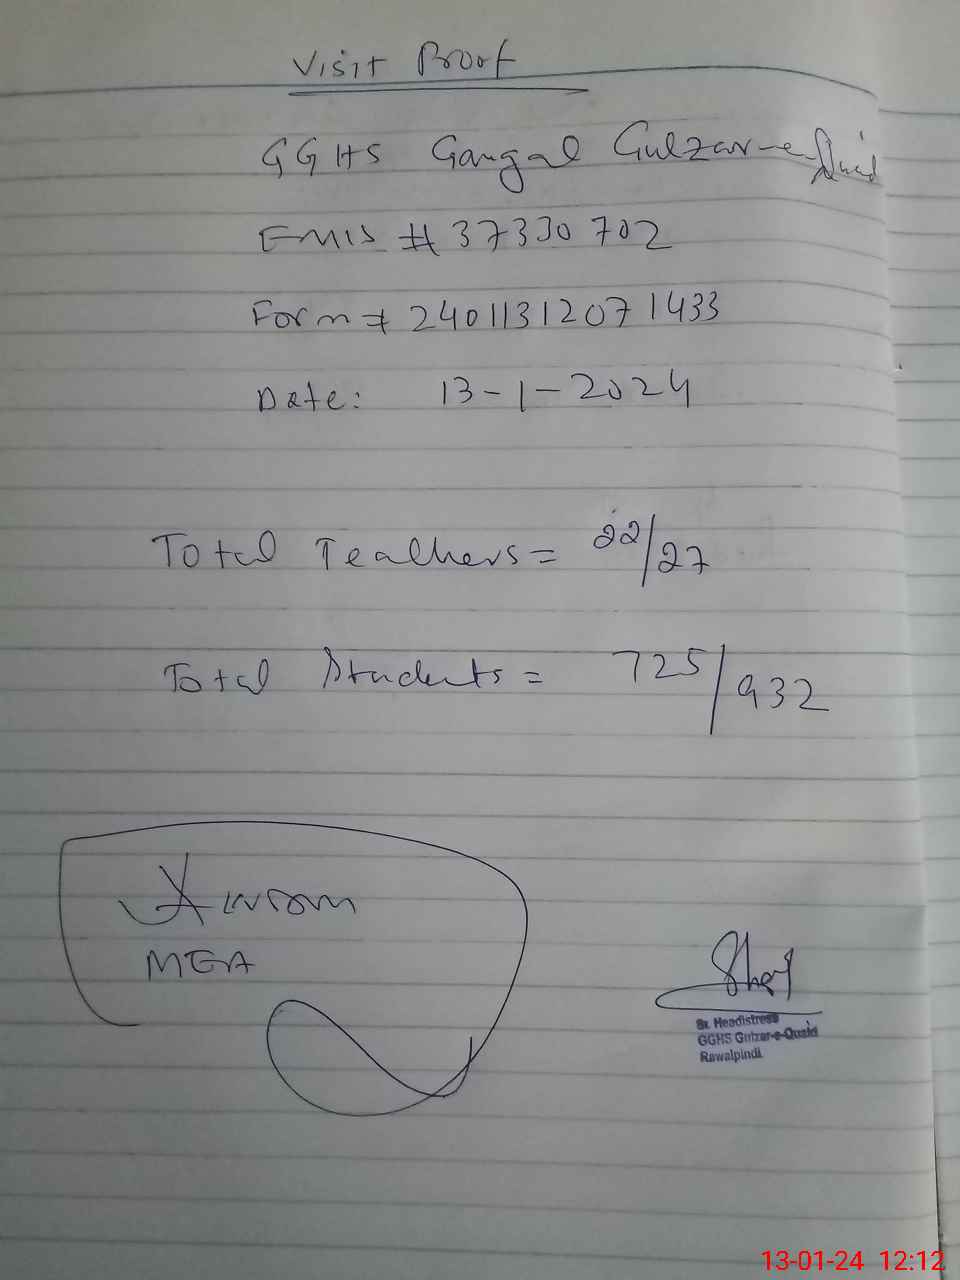 Visit Proof
GGHS Gangal Gulzar-e-Quaid
EMIS # 37330702
Form # 24011312071433
Date: 13-1-2024
Total Teachers = 22/27
Total Students = 725/932
MEA
Sr. Headistress
GGHS Gulzar-e-Quaid
Rawalpindi
13-01-24 12:12